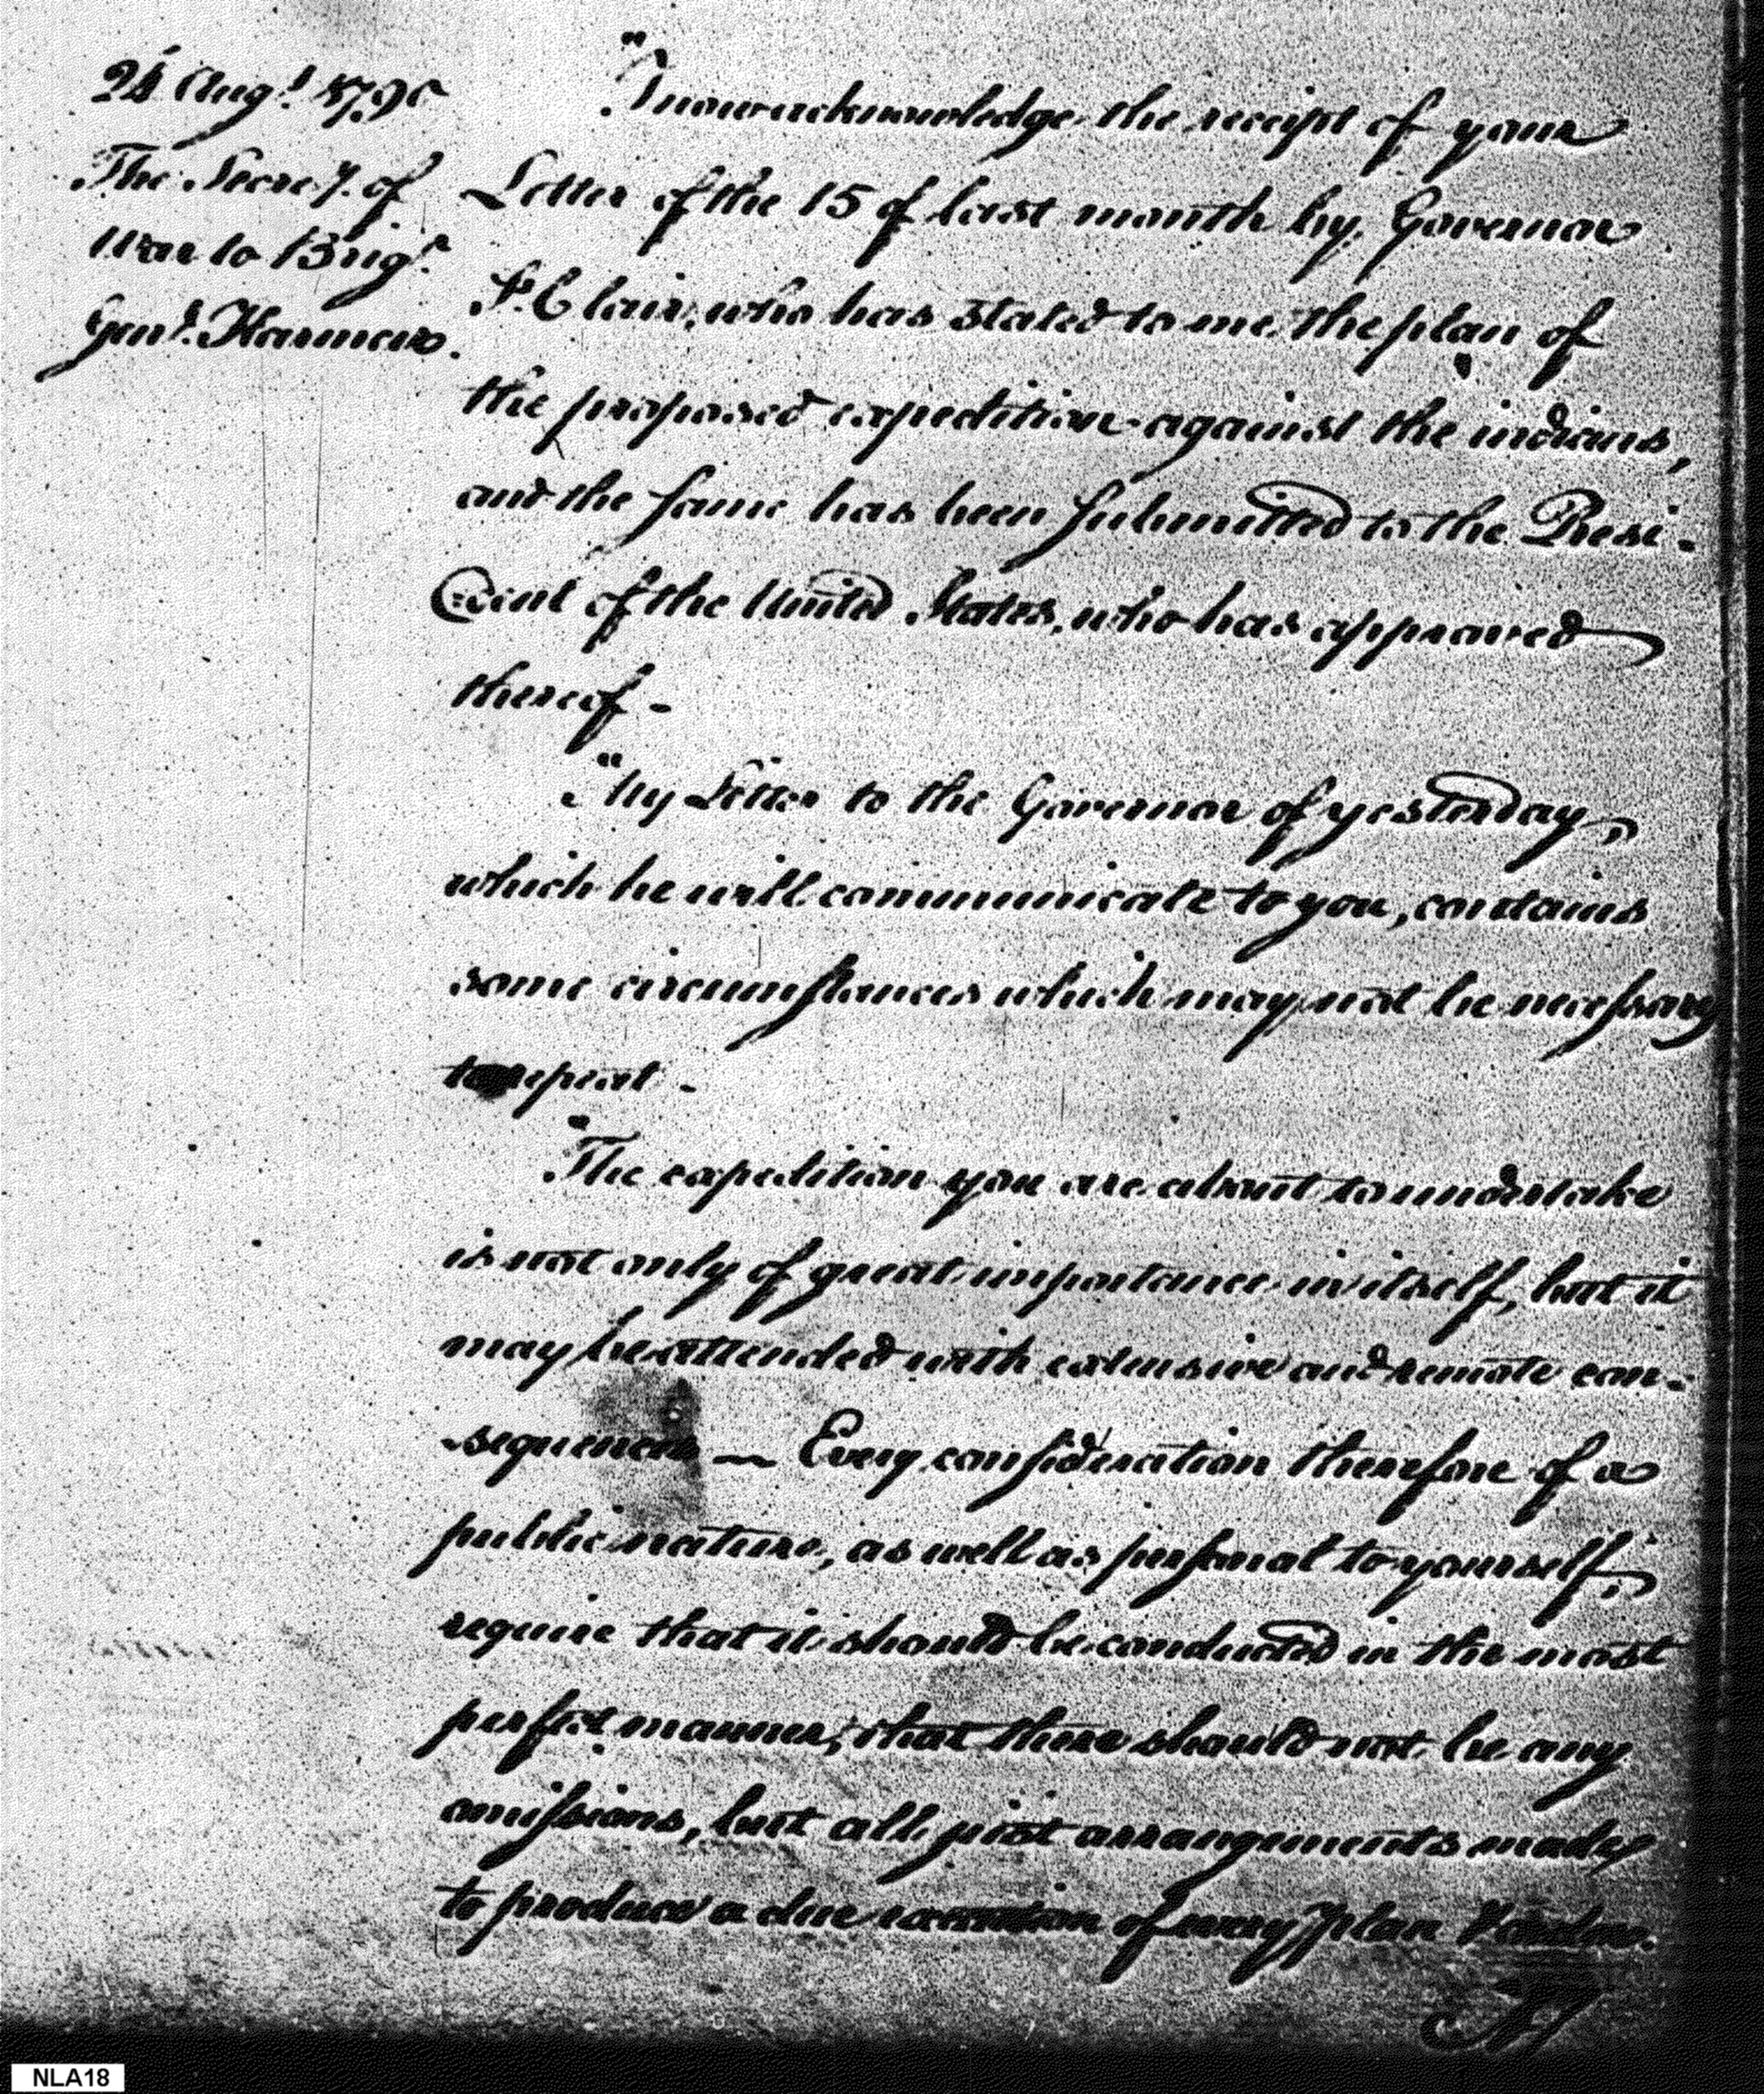 24 Augt. 1790
The Secrey. of
War to Brigr.
Genl. Harmer.
"I now acknowledge the receipt of your
Letter of the 15 of last month by Governor
St. Clair, who has stated to me the plan of
the proposed expedition against the indians,
and the same has been submitted to the Presi-
dent of the United States, who has approved
thereof -
"My Letter to the Governor of yesterday,
which he will communicate to you, contains
some circumstances which may not be necessary
to repeat -
"The expedition you are about to undertake
is not only of great importance in itself, but it
may be attended with extensive and remote con-
sequences — Every consideration therefore of a
public nature, as well as personal to yourself,
require that it should be conducted in the most
perfect manner; that there should not be any
omissions, but all just arrangements made
to produce a due execution of every plan
NLA18